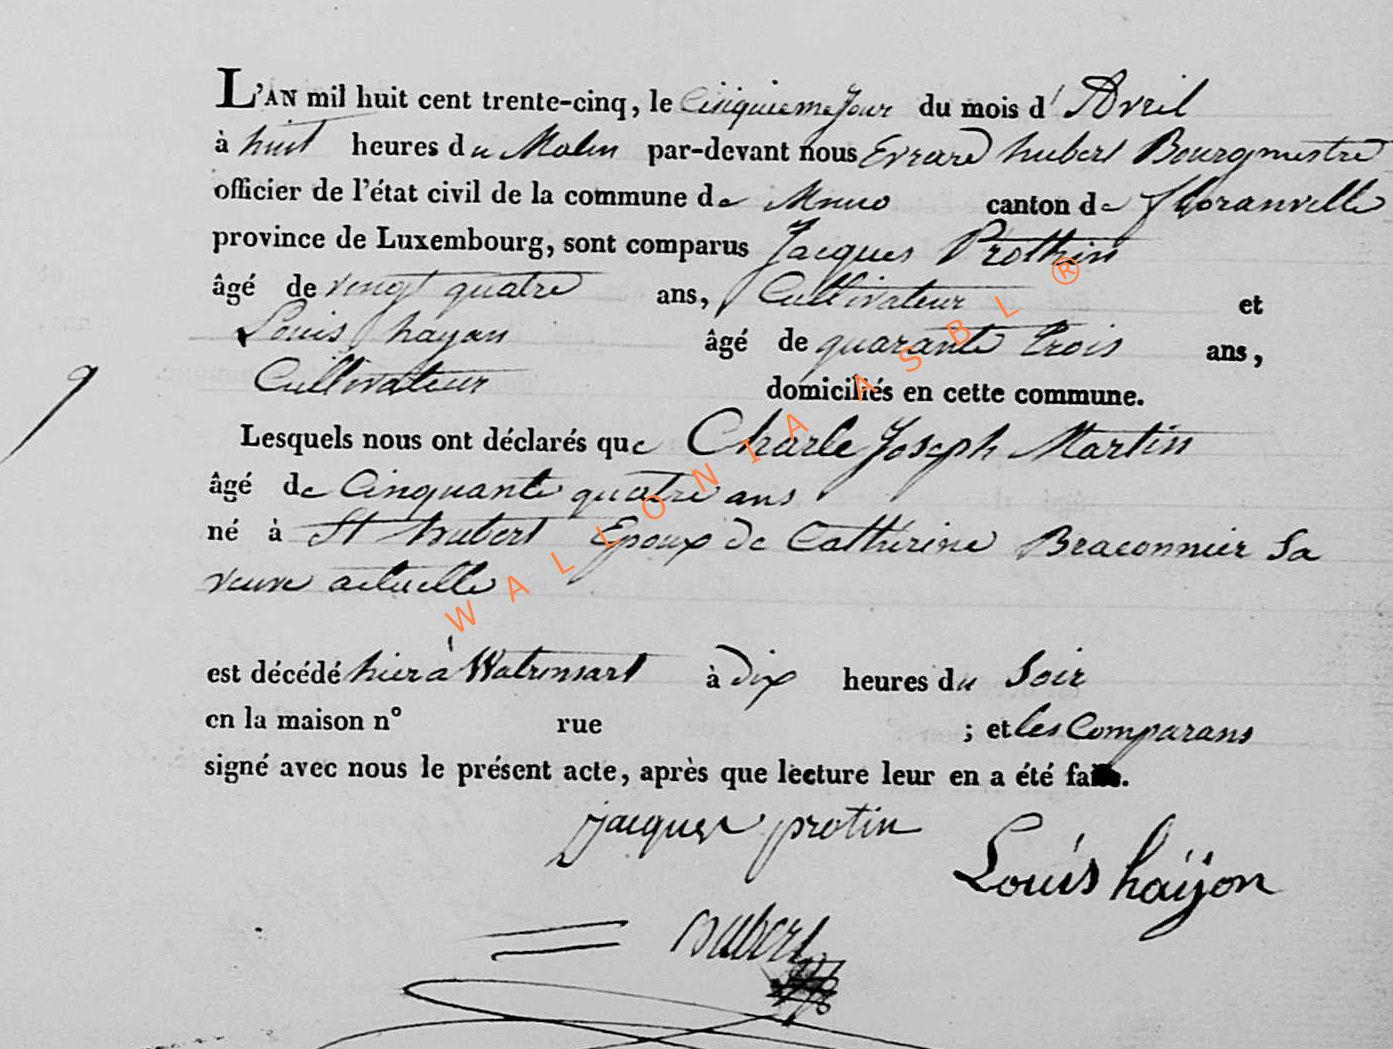 L'AN mil huit cent trente-cinq, le Cinquieme Jour du mois d' Avril
à huit heures du Matin par-devant nous Evrard hubert Bourgmestre
officier de l'état civil de la commune de Muno canton de floranville
province de Luxembourg, sont comparus Jacques Prothin
âgé de vingt quatre ans, Cultivateur et
Louis hayon âgé de quarante trois ans,
Cultivateur domiciliés en cette commune.
9
Lesquels nous ont déclarés que Charle Joseph Martin
âgé de Cinquante quatre ans
né à St hubert Epoux de Cathérine Braconnier Sa
veuve actuelle
est décédé hier à Watrinsart à dix heures du Soir
en la maison n° rue ; et les Comparans
signé avec nous le présent acte, après que lecture leur en a été faite.
jacques protin
Louis haÿon
hubert
WALLONIA ASBL ®